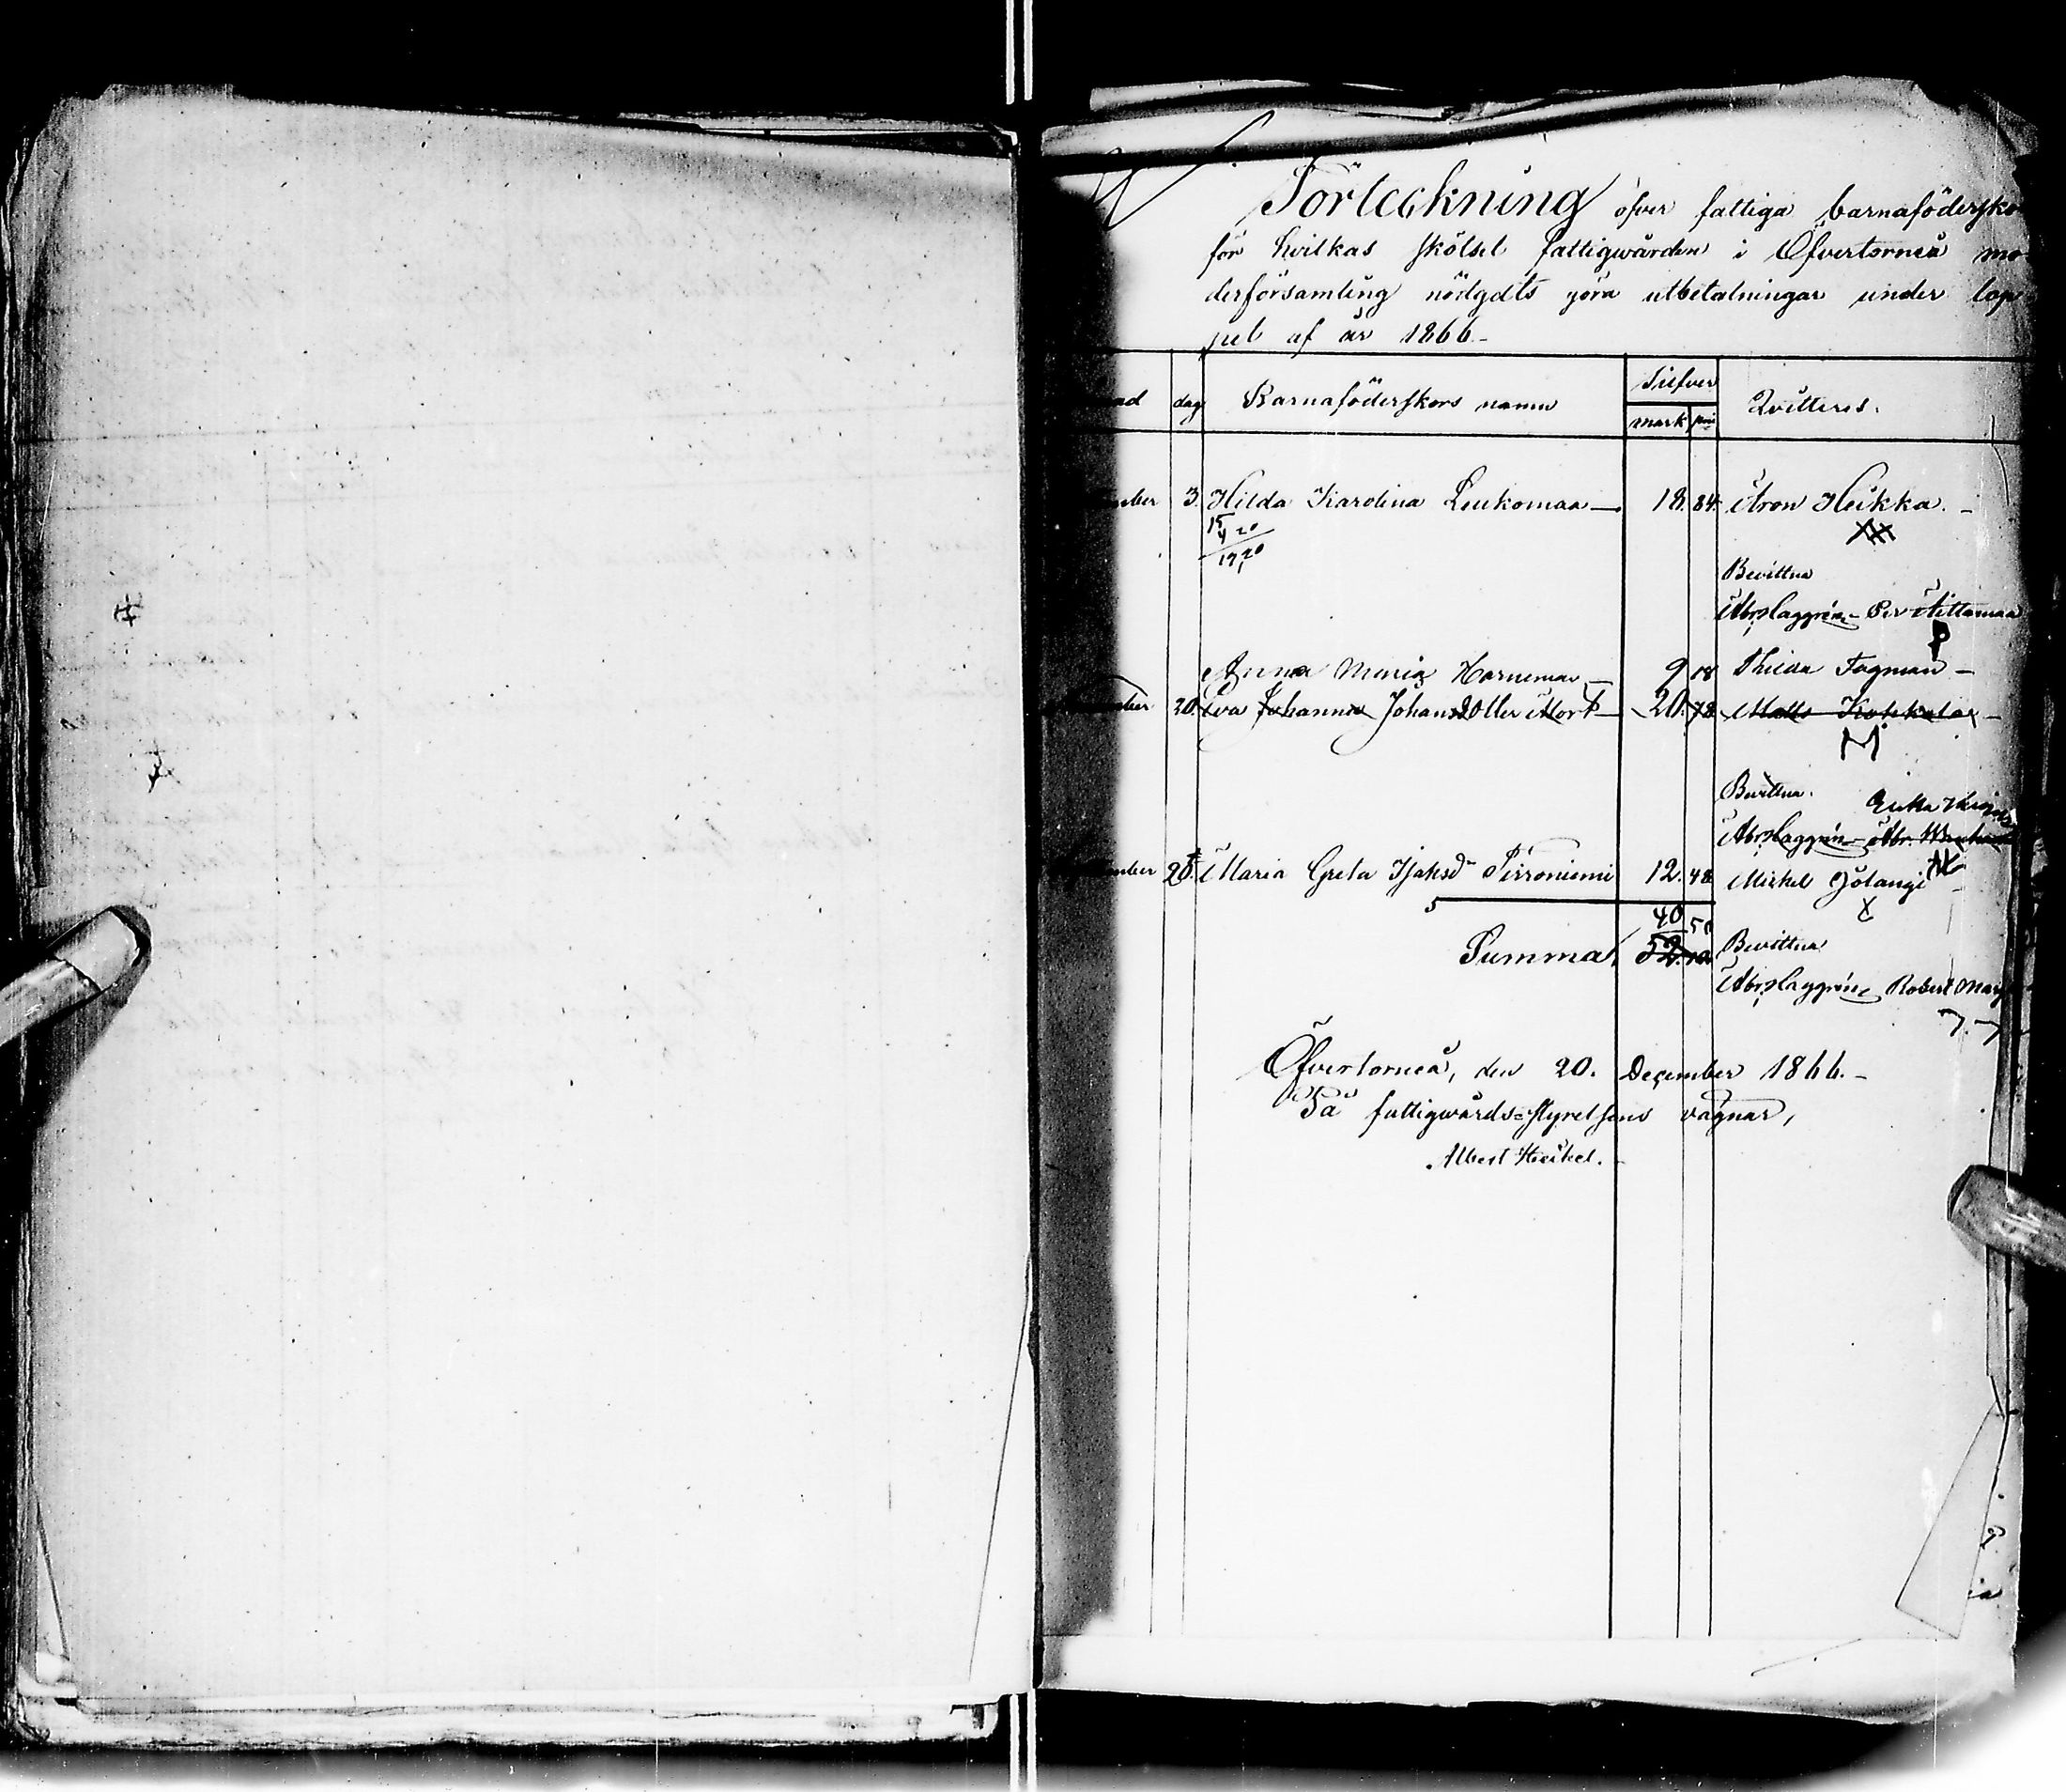 Förteckning öfver fattiga barnafödersko
för hvilkas skötsel fattigwården i Öfvertorneå mo
derförsamling nödgats göra utbetalningar under lop
pet af år 1866.-
ad dag Barnaföderskors namn Silfver mark pni Qvitteras.
mber 3. Hilda Karolina Liukomaa — 18. 84. Aron Heikka. -
15
4 20
19,20
Bevittna
Abr. Laggrén - Per Aittamaa
Anna Maria Hornemar — 9 18 Thilda Fogman —
mber 20. Eva Johanna Johansdotter Mort — 20. 78. Matts Kohkalax —
M
Bevittna.
Abr. Laggrén - Abr.
mber 28. Maria Greta Isaksd Pirroniemi 12. 48 Mickel Jolangi
5
40 50
Summa 52.
Bevittna
Abr. Laggrén, Robert
Öfvertorneå, den 20. December 1866.-
På fattigwårds=styrelsens vägnar,
Albert Heikel. -